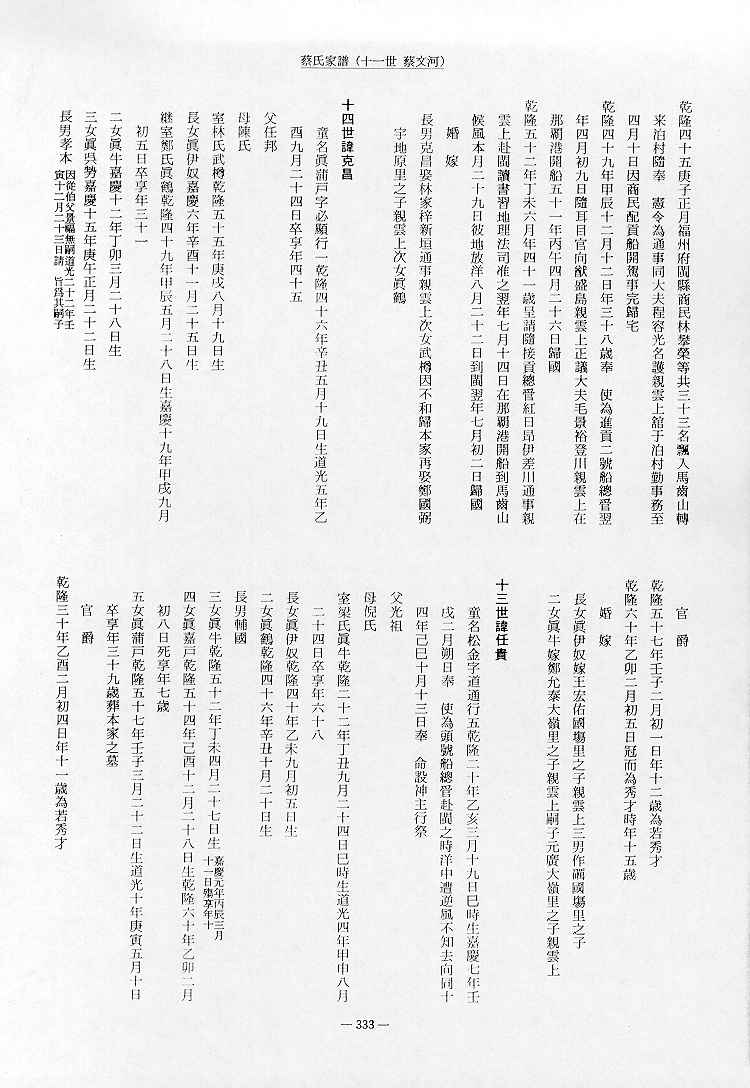 蔡氏家譜（十一世 蔡文河）
乾隆四十五庚子正月福州府閩縣商民林攀榮等共三十三名飄入馬齒山轉
来泊村隨奉 憲令為通事同大夫程容光名護親雲上舘于泊村勤事務至
四月十日因商民配貢船開駕事完歸宅
乾隆四十九年甲辰十二月十二日年三十八歳奉 使為進貢二號船總管翌
年四月初九日隨耳目官向猷盛島親雲上正議大夫毛景裕登川親雲上在
那覇港開船五十一年丙午四月二十六日歸國
乾隆五十二年丁未六月年四十一歳呈請隨接貢總管紅日昂伊差川通事親
雲上赴閩讀書習地理法司准之翌年七月十四日在那覇港開船到馬齒山
候風本月二十九日彼地放洋八月二十二日到閩翌年七月初二日歸國
婚 嫁
長男克昌娶林家梓新垣通事親雲上次女武樽因不和歸本家再娶鄭國弼
宇地原里之子親雲上次女眞鶴
十四世諱克昌
童名眞蒲戸字必顯行一乾隆四十六年辛丑五月十九日生道光五年乙
酉九月二十四日卒享年四十五
父任邦
母陳氏
室林氏武樽乾隆五十五年庚戌八月十九日生
長女眞伊奴嘉慶六年辛酉十一月二十五日生
継室鄭氏眞鶴乾隆四十九年甲辰五月二十八日生嘉慶十九年甲戌九月
初五日卒享年三十一
二女眞牛嘉慶十二年丁卯三月二十八日生
三女眞呉勢嘉慶十五年庚午正月二十二日生
長男孝木 因從伯父景福無嗣道光二十二年壬
寅十二月二十三日請 旨為其嗣子
官 爵
乾隆五十七年壬子二月初一日年十二歳為若秀才
乾隆六十年乙卯二月初五日冠而為秀才時年十五歳
婚 嫁
長女眞伊奴嫁王宏佑國塲里之子親雲上三男作霌國塲里之子
二女眞牛嫁鄭允泰大嶺里之子親雲上嗣子元廣大嶺里之子親雲上
十三世諱任貴
童名松金字道通行五乾隆二十年乙亥三月十九日巳時生嘉慶七年壬
戌二月朔日奉 使為頭號船總管赴閩之時洋中遭逆風不知去向同十
四年己巳十月十三日奉 命設神主行祭
父光祖
母倪氏
室梁氏眞牛乾隆二十二年丁丑九月二十四日巳時生道光四年甲申八月
二十四日卒享年六十八
長女眞伊奴乾隆四十年乙未九月初五日生
二女眞鶴乾隆四十六年辛丑十月二十日生
長男輔國
三女眞牛乾隆五十二年丁未四月二十七日生 嘉慶元年丙辰三月
十一日殤享年十
四女眞嘉戸乾隆五十四年己酉十二月二十八日生乾隆六十年乙卯二月
初八日死享年七歳
五女眞蒲戸乾隆五十七年壬子三月二十二日生道光十年庚寅五月十日
卒享年三十九歳葬本家之墓
官 爵
乾隆三十年乙酉二月初四日年十一歳為若秀才
— 333 —